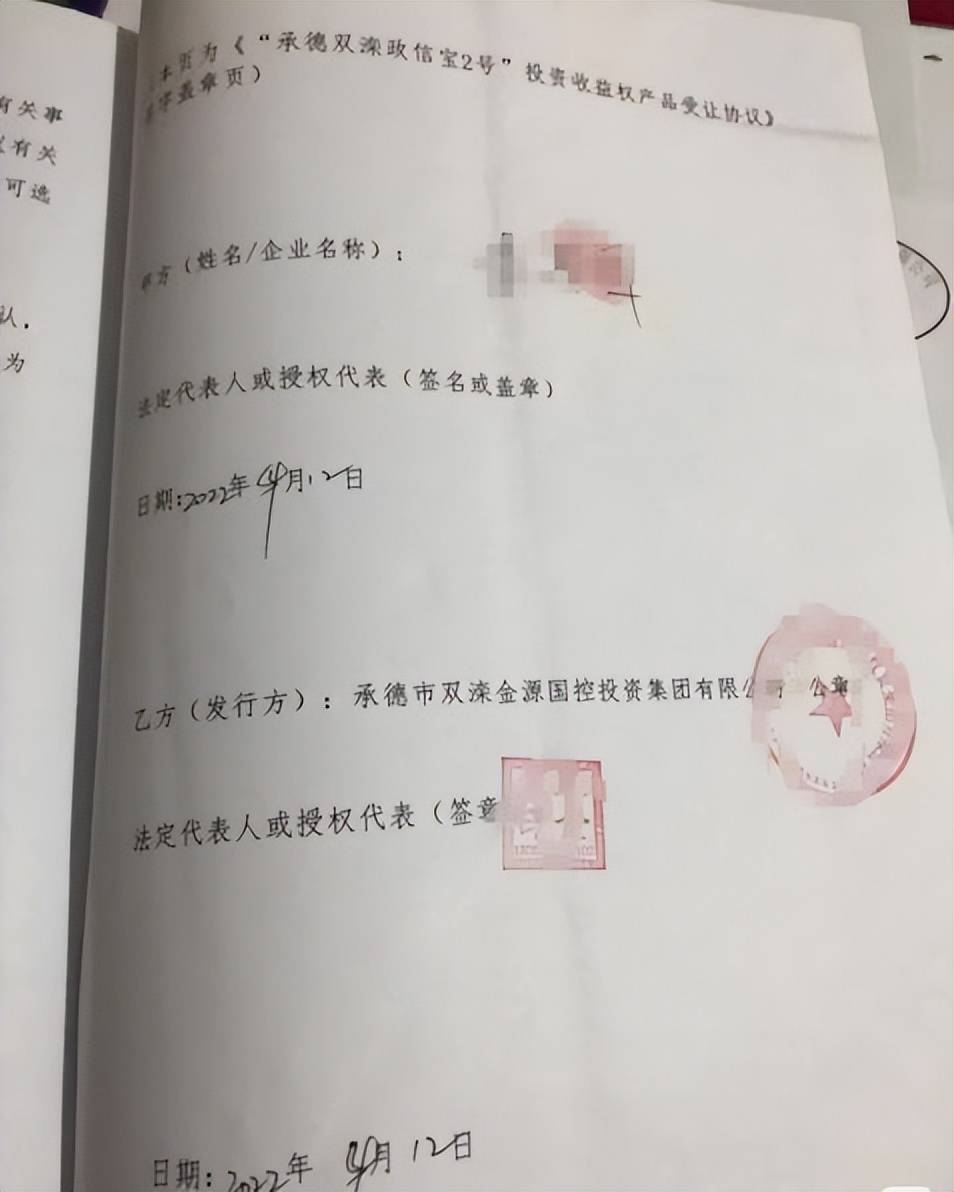 有关事
有关
可选
队，
为
本页为《“承德双滦政信宝2号”投资收益权产品受让协议》
签字盖章页）
甲方（姓名/企业名称）：
法定代表人或授权代表（签名或盖章）
日期:2022年4月12日
乙方（发行方）：承德市双滦金源国控投资集团有限公司 公章
法定代表人或授权代表（签章
日期:2022年4月12日